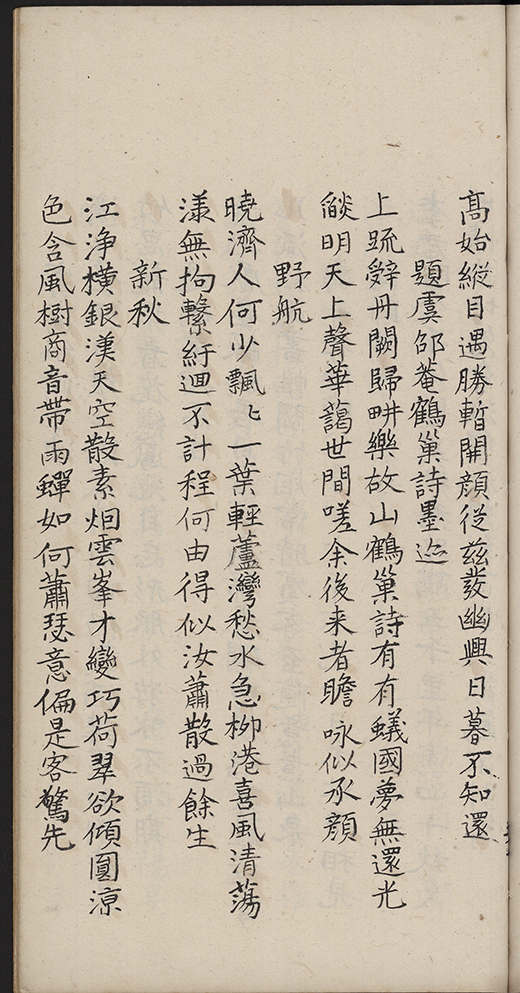 高始縱目遇勝暫開顔從兹發幽興日暮不知還
題虞邵菴鶴巢詩墨迹
上疏辭丹闕歸畊樂故山鶴巢詩有有蟻國夢無還光
燄明天上聲華藹世間嗟余後来者瞻咏似承顔
野航
曉濟人何少飄〻一葉輕蘆灣愁水急柳港喜風清蕩
漾無拘繫紆迴不計程何由得似汝蕭散過餘生
新秋
江浄横銀漢天空散素烟雲峯才變巧荷翠欲傾圓涼
色含風樹商音帶雨蟬如何蕭瑟意偏是客驚先